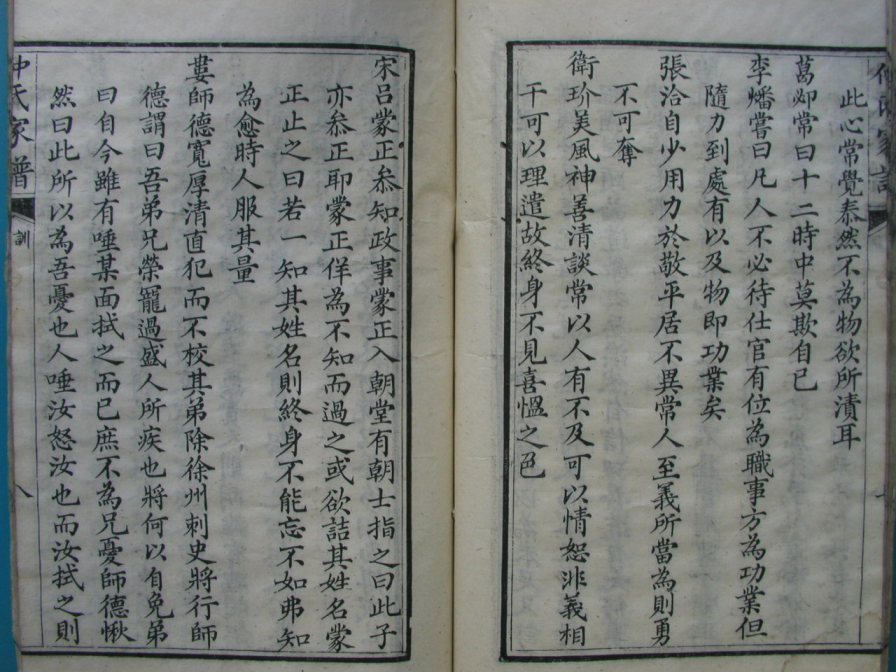 此心常覺泰然不為物欲所漬耳
葛邲常曰十二時中莫欺自己
李燔嘗曰凡人不必待仕官有位為職事方為功業但
隨力到處有以及物即功業矣
張洽自少用力於敬平居不異常人至義所當為則勇
不可奪
衛玠美風神善清談常以人有不及可以情恕非義相
干可以理遣故終身不見喜慍之色
宋呂蒙正叅知政事蒙正入朝堂有朝士指之曰此子
亦叅正耶蒙正佯為不知而過之或欲詰其姓名蒙
正止之曰若一知其姓名則終身不能忘不如弗知
為愈時人服其量
婁師德寬厚清直犯而不校其弟除徐州刺史將行師
德謂曰吾弟兄榮寵過盛人所疾也將何以自免弟
曰自今雖有唾某面拭之而已庶不為兄憂師德愀
然曰此所以為吾憂也人唾汝怒汝也而汝拭之則
仲氏家譜
訓
八